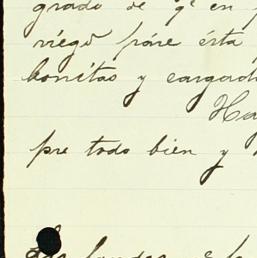 grado de q^e en
riego pare ésta
bonitas y cargad
Ha
pre todo bien y